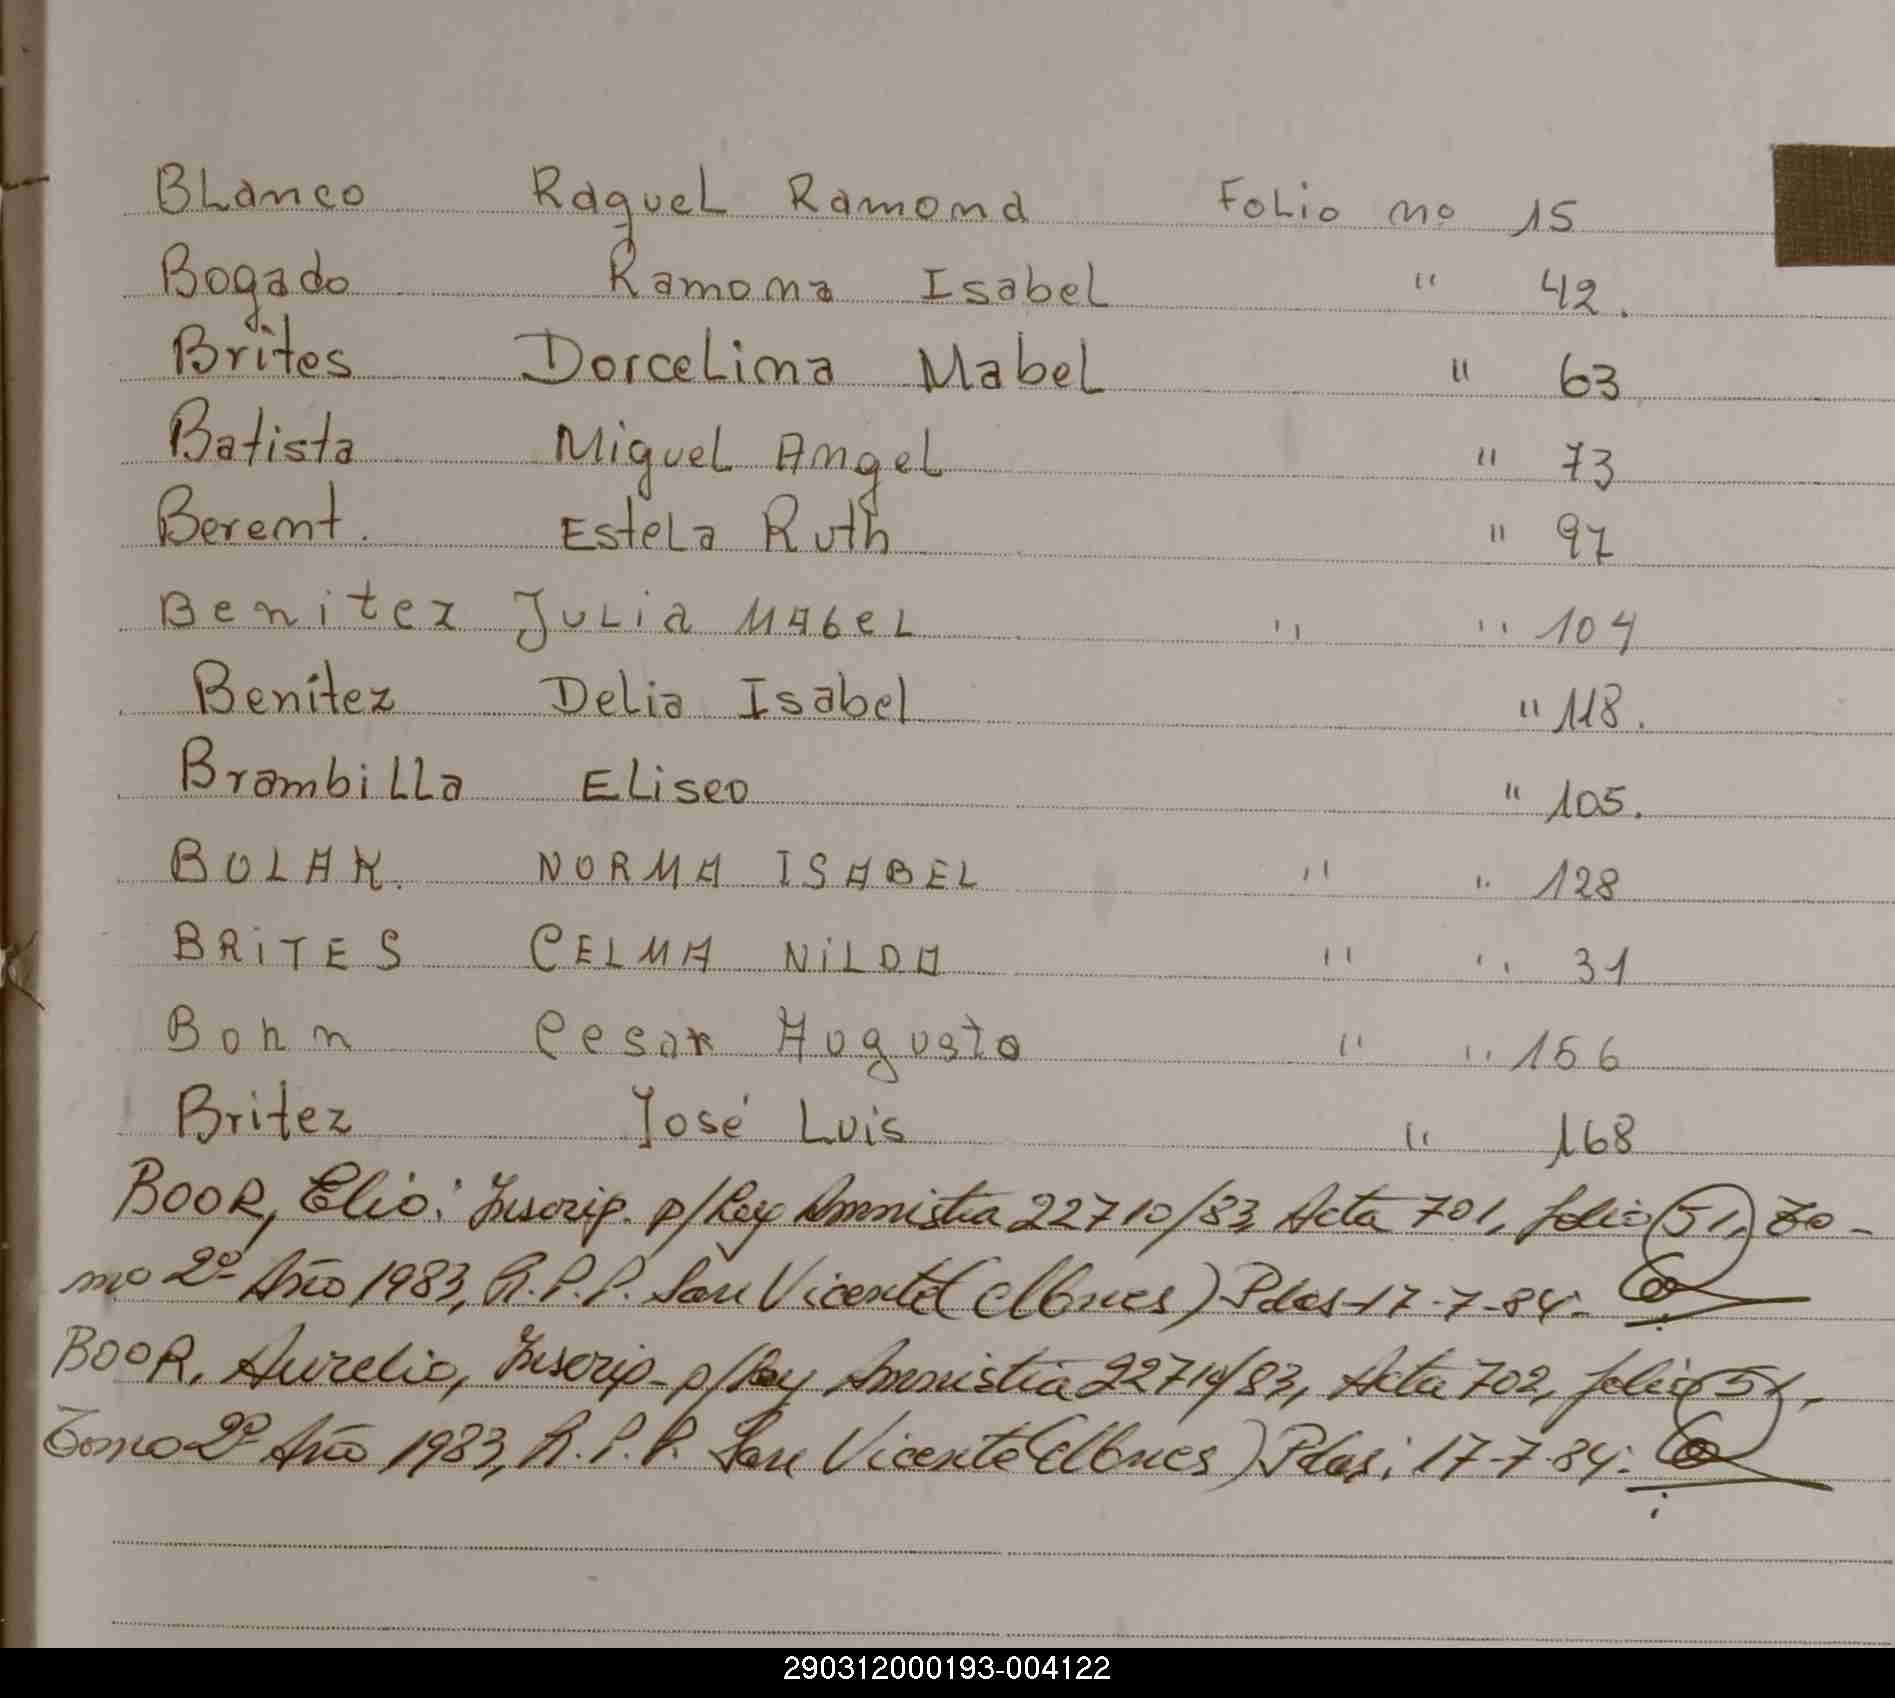 BLanco Raquel Ramona Folio no 15
Bogado Ramona Isabel " 42.
Brites Dorcelina Mabel " 63
Batista Miguel Angel " 73
Beremt. Estela Ruth " 97
Benitez Julia Mabel " " 104
Benítez Delia Isabel " 118.
Brambilla Eliseo " 105.
BOLAK. NORMA ISABEL " " 128
BRITES CELMA NILDA " " 31
Bohn Cesar Augusto " " 156
Britez José Luis " 168
BOOR, Elio: Inscrip. p/Ley Amnistia 22710/83, Acta 701, folio 51, To-
mo 2º Año 1983, R.P.P. San Vicente (Mnes) Pdas-17-7-84-
BOOR, Aurelio, Inscrip- p/Ley Amnistia 22710/83, Acta 702, folio 51,
Tomo 2º Año 1983, R.P.P. San Vicente (Mnes) Pdas; 17-7-84-
290312000193-004122